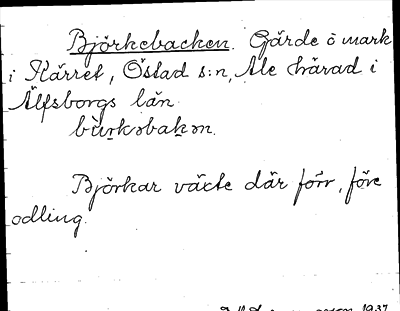 Björkebacken. Gärde o mark
i Kärret, Östad s:n, Ale härad i
Älfsborgs län.
bùrkəbakən.
Björkar växte där förr, före
odling.
1937